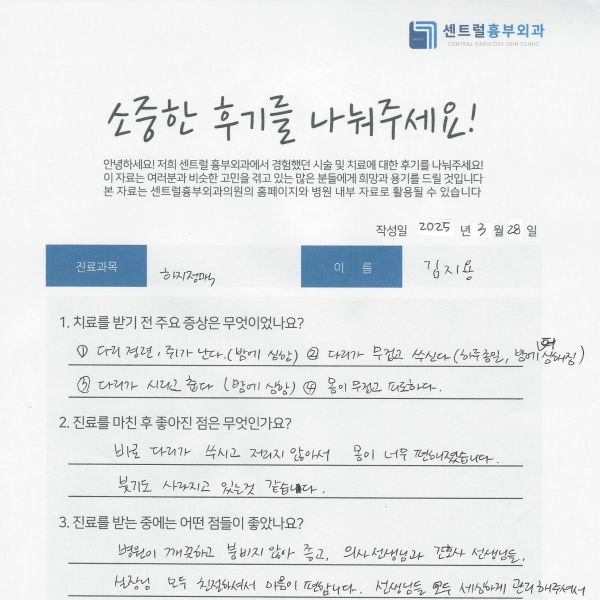 센트럴흉부외과
CENTRAL VARICOSE VEIN CLINIC
소중한 후기를 나눠주세요!
안녕하세요! 저희 센트럴 흉부외과에서 경험했던 시술 및 치료에 대한 후기를 나눠주세요!
이 자료는 여러분과 비슷한 고민을 겪고 있는 많은 분들에게 희망과 용기를 드릴 것입니다
본 자료는 센트럴흉부외과의원의 홈페이지와 병원 내부 자료로 활용될 수 있습니다
작성일 2025 년 3 월 28 일
진료과목 하지정맥 이 름 김지용
1. 치료를 받기 전 주요 증상은 무엇이었나요?
① 다리 경련, 쥐가 난다.(밤에 심함) ② 다리가 무겁고 쑤신다(하루종일, 밤에 더 심해짐)
③ 다리가 시리고 춥다 (밤에 심함) ④ 몸이 무겁고 피로하다.
2. 진료를 마친 후 좋아진 점은 무엇인가요?
바로 다리가 쑤시고 저리지 않아서 몸이 너무 편해졌습니다.
붓기도 사라지고 있는것 같습니다.
3. 진료를 받는 중에는 어떤 점들이 좋았나요?
병원이 깨끗하고 붐비지 않아 좋고, 의사선생님과 간호사 선생님들,
실장님 모두 친절하셔서 마음이 편합니다. 선생님들 모두 세심하게 관리해주셔서